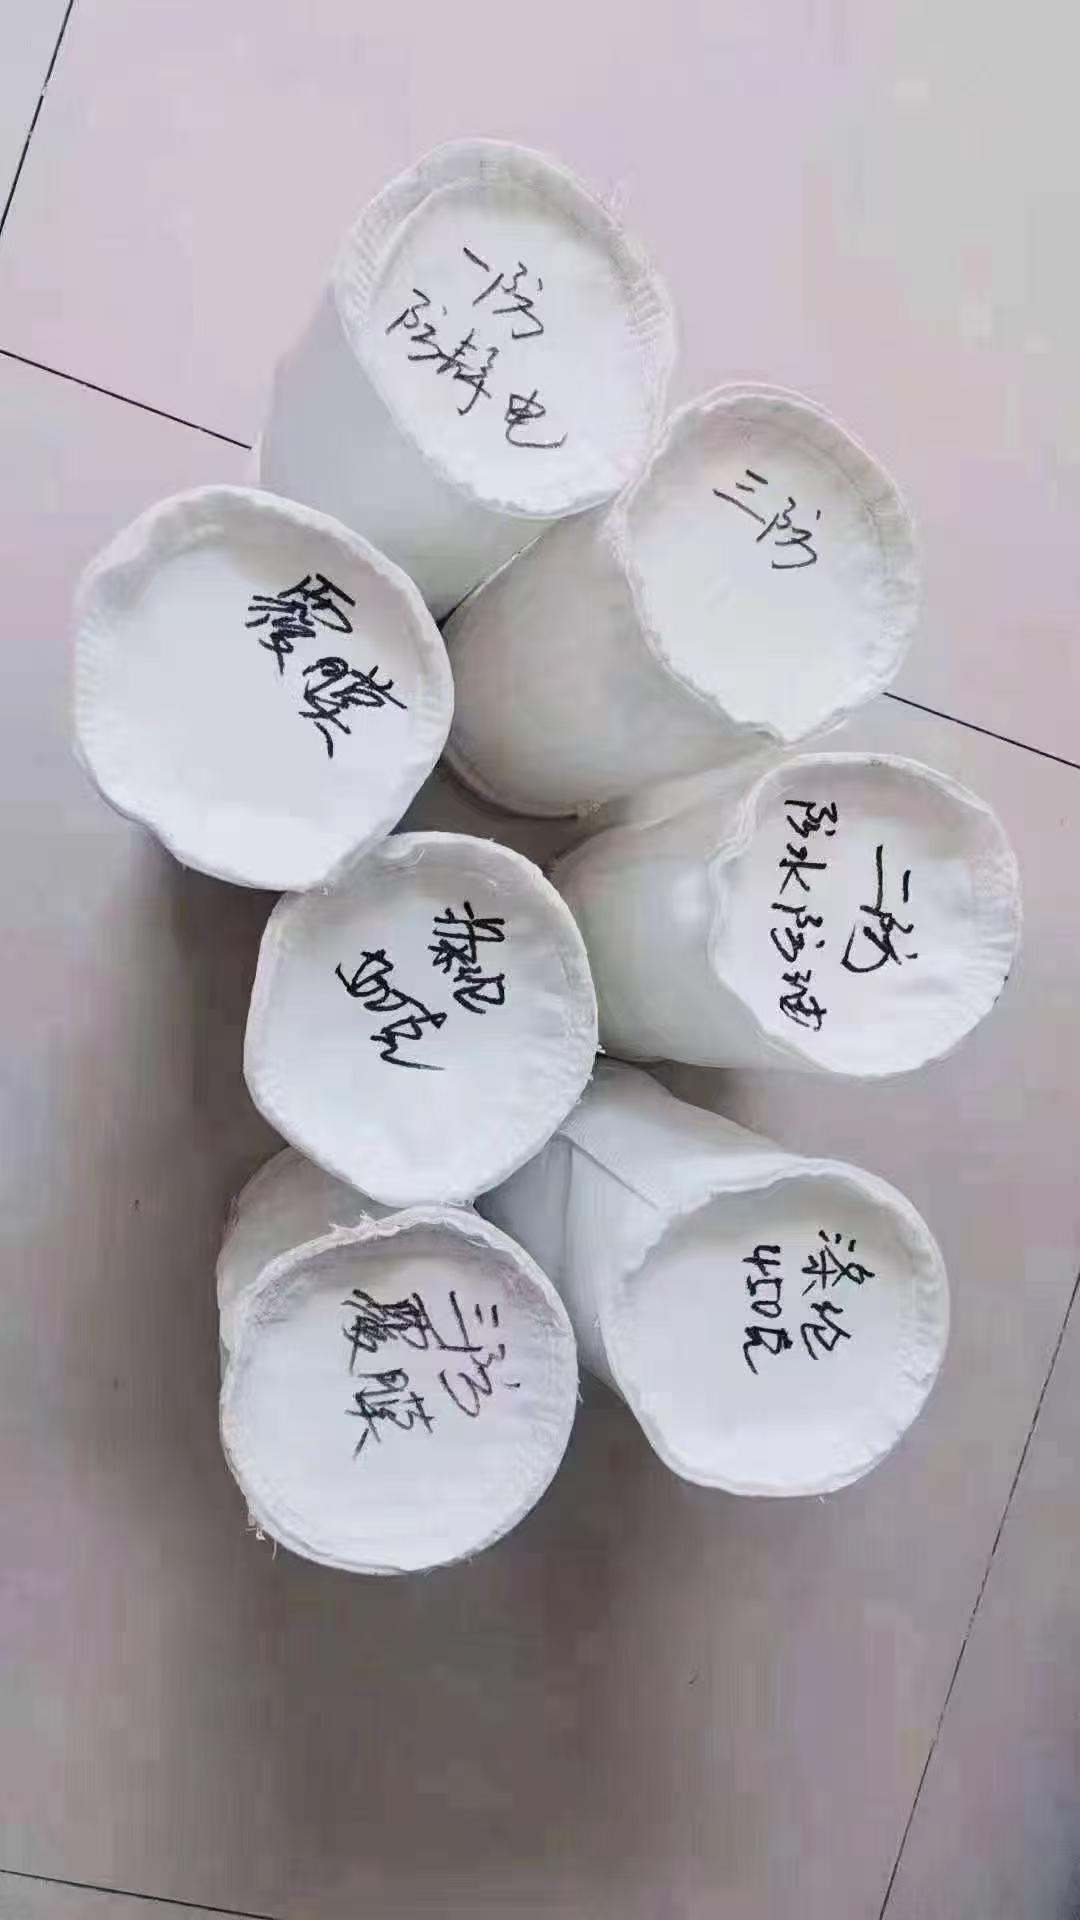 一防
防静电
三防
覆膜
二防
防水防油
涤纶
涤纶
450克
三防
覆膜